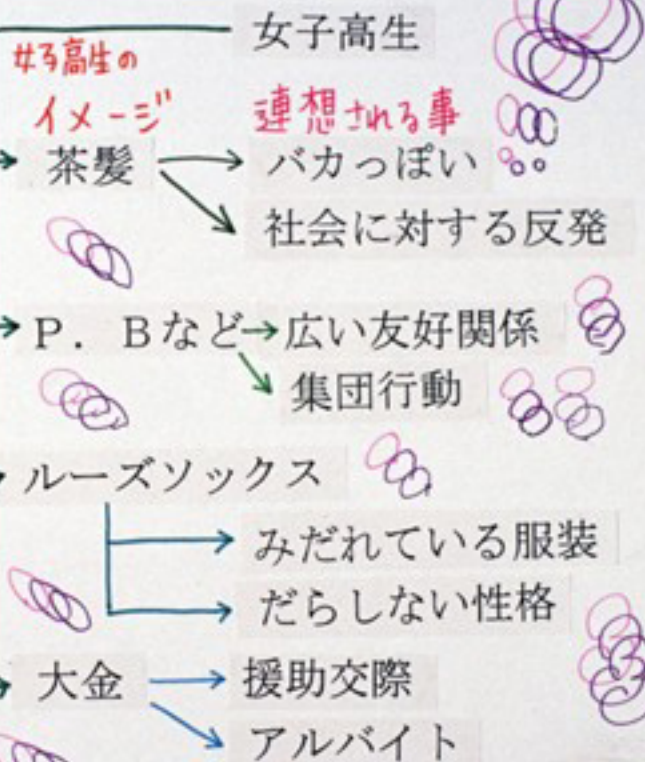 女子高生
女子高生の
イメージ
連想される事
茶髪
バカっぽい
社会に対する反発
P. Bなど
広い友好関係
集団行動
ルーズソックス
みだれている服装
だらしない性格
大金
援助交際
アルバイト